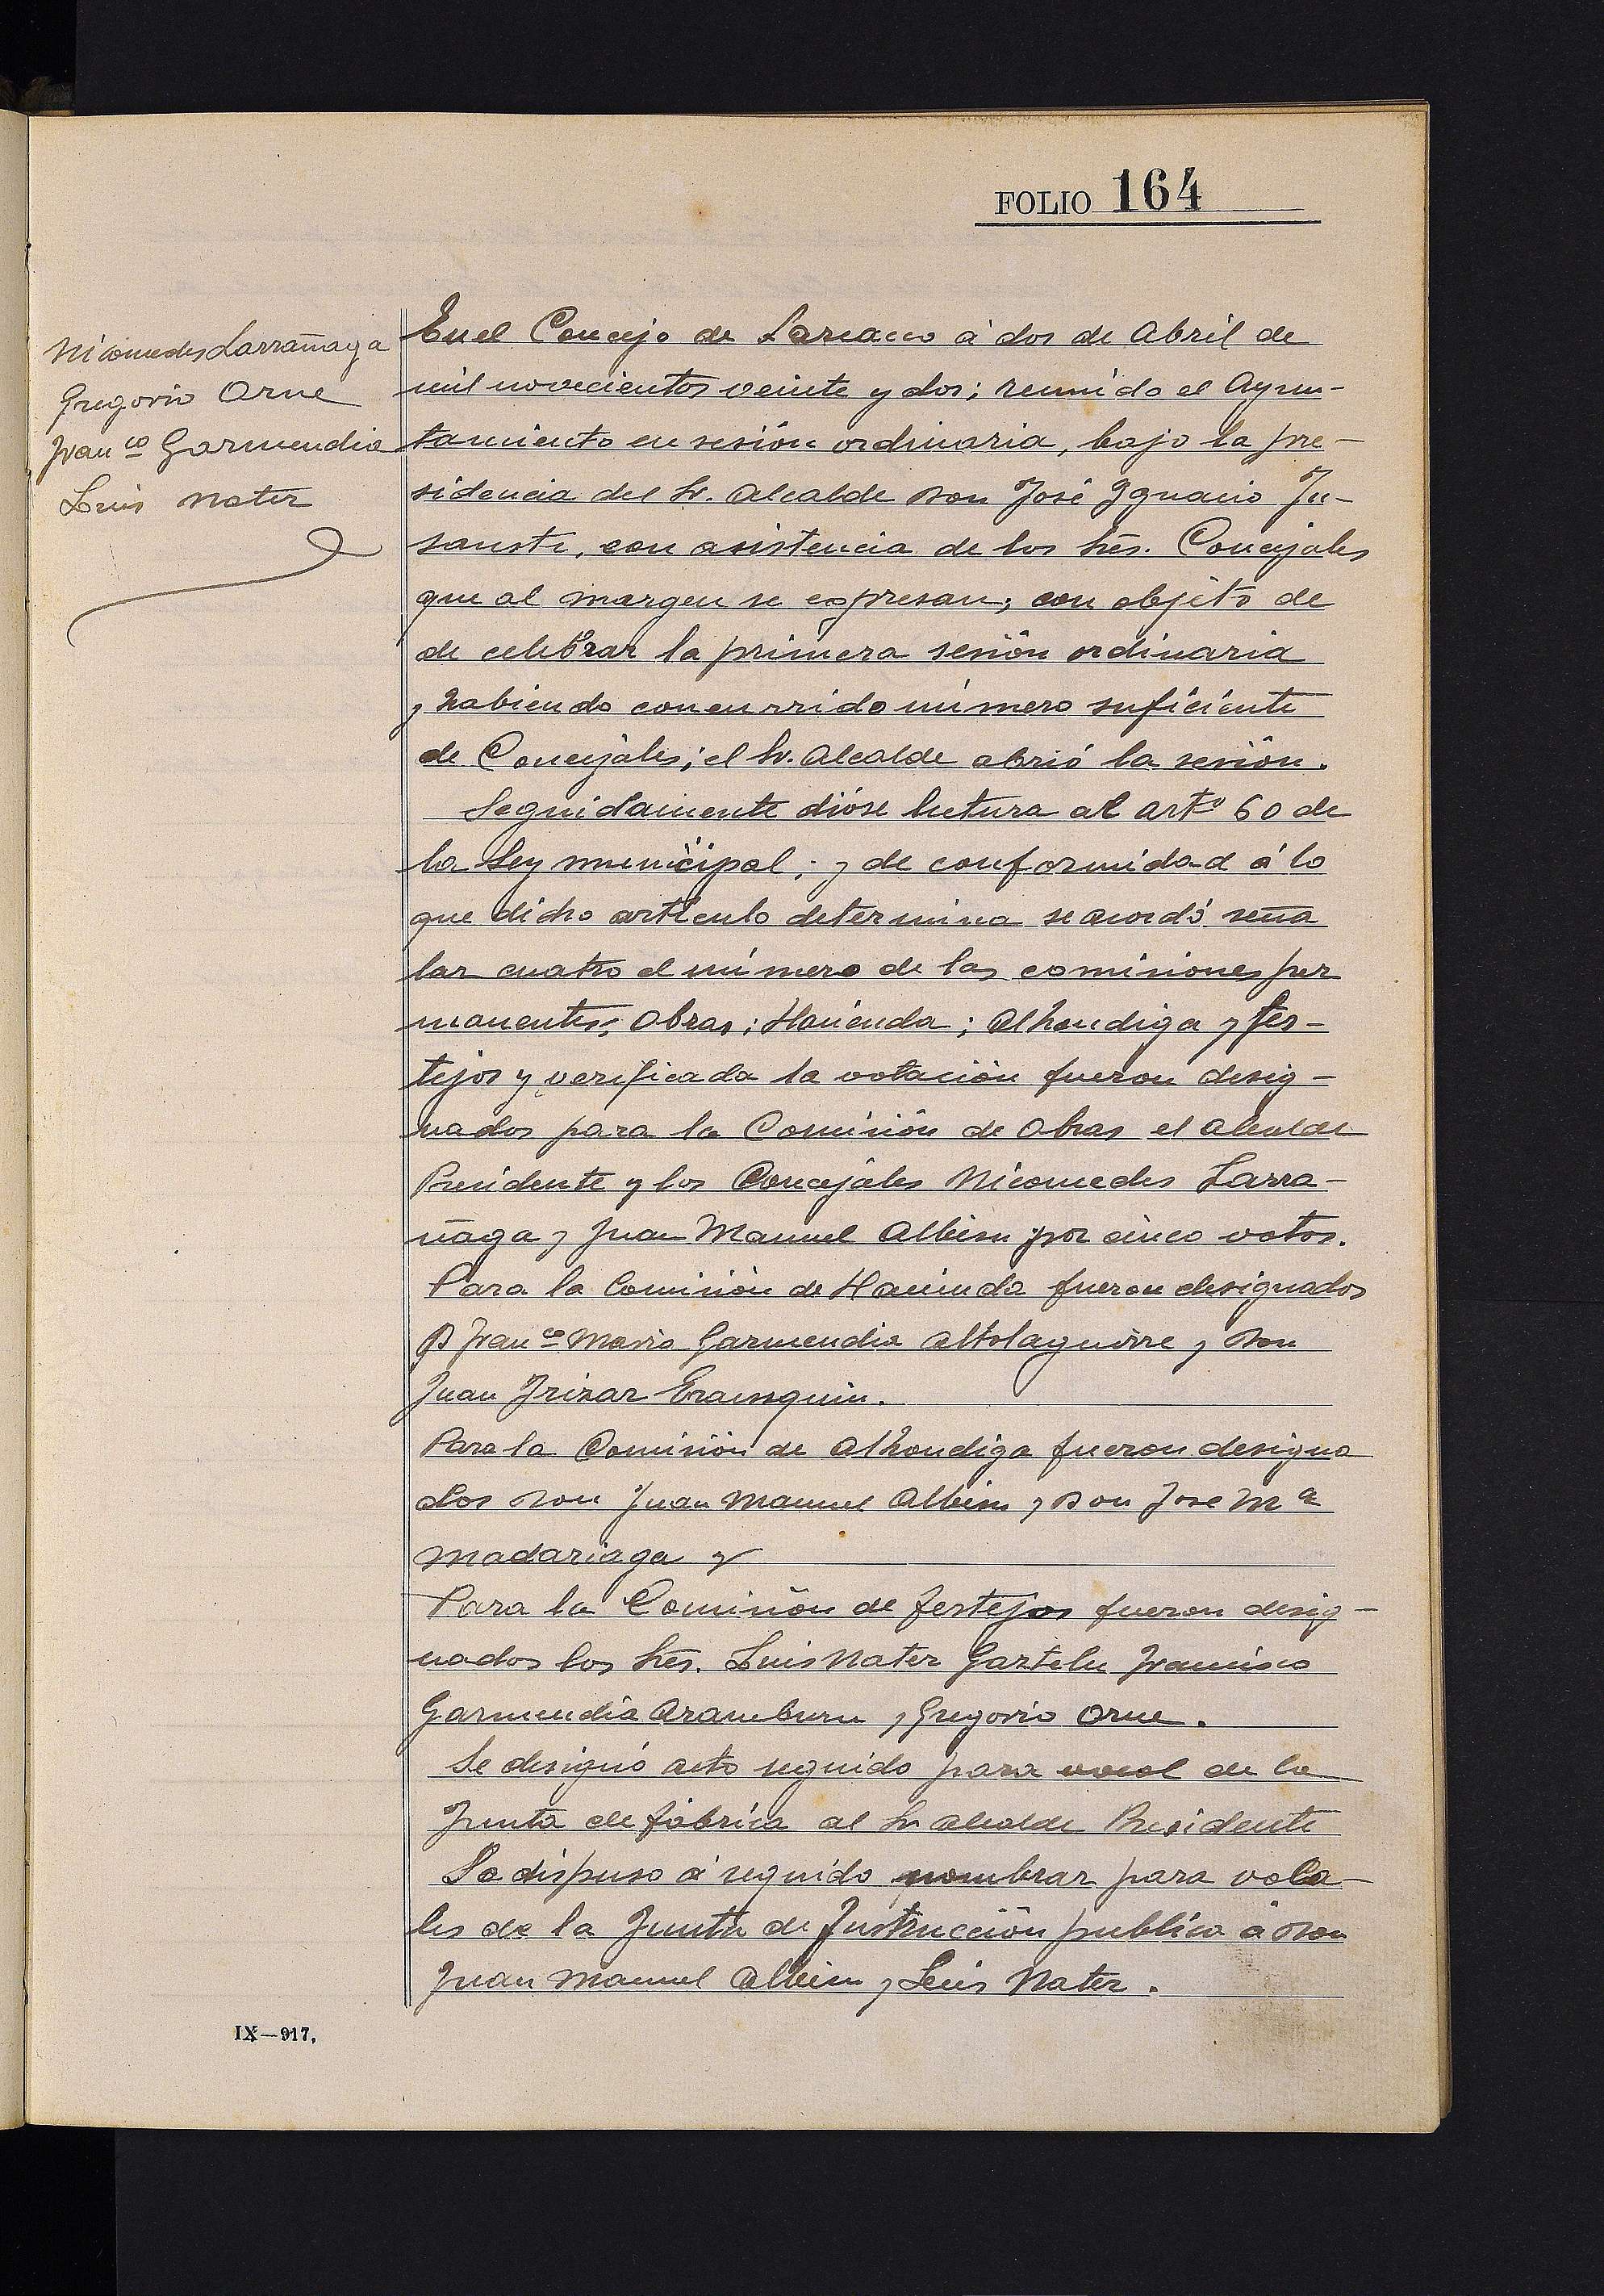 FOLIO 164
Nicomedes Larrañaga
Gregorio Orue
Franco Garmendia
Luis Nater
En el Concejo de Larcaco á dos de Abril de
mil novecientos veinte y dos; reunido el Ayun-
tamiento en sesión ordinaria, bajo la pre-
sidencia del Sr. Alcalde Don José Ygnacio
con asistencia de los Srés. Concejales
que al margen se espresan; con objeto de
de celebrar la primera sesión ordinaria
y habiendo concurrido número suficiente
de Concejales; el Sr. Alcalde abrió la sesión.
Seguidamente dióse lectura al arto 60 de
la Ley municipal; y de conformidad á lo
que dicho artículo determina se acordó seña
lar cuatro el número de las comisiones per
manentes; Obras; Hacienda; Alhondiga y fes-
tejos y verificada la votación fueron desig-
nados para la Comisión de Obras el Alcalde
Presidente y los Concejales Nicomedes Larra-
ñaga y Juan Manuel Albisu por cinco votos.
Para la Comisión de Hacienda fueron designados
D Franco Maria Garmendia Altolaguirre y Don
Juan Irizar Erausquin.
Para la Comisión de Alhondiga fueron designa
dos Don Juan Manuel Albisu y Don Jose Ma
Madariaga y
Para la Comisión de festejos fueron desig-
nados los Srés. Luis Nater Gaztelu Francisco
Garmendia Aramburu y Gregorio Orue.
Se designó acto seguido para vocal de la
Junta de fábrica al Sr Alcalde Presidente
Se dispuso á seguido nombrar para voca-
les de la Junta de Instrucción publica á Don
Juan Manuel Albisu y Luis Nater.
IX—917.